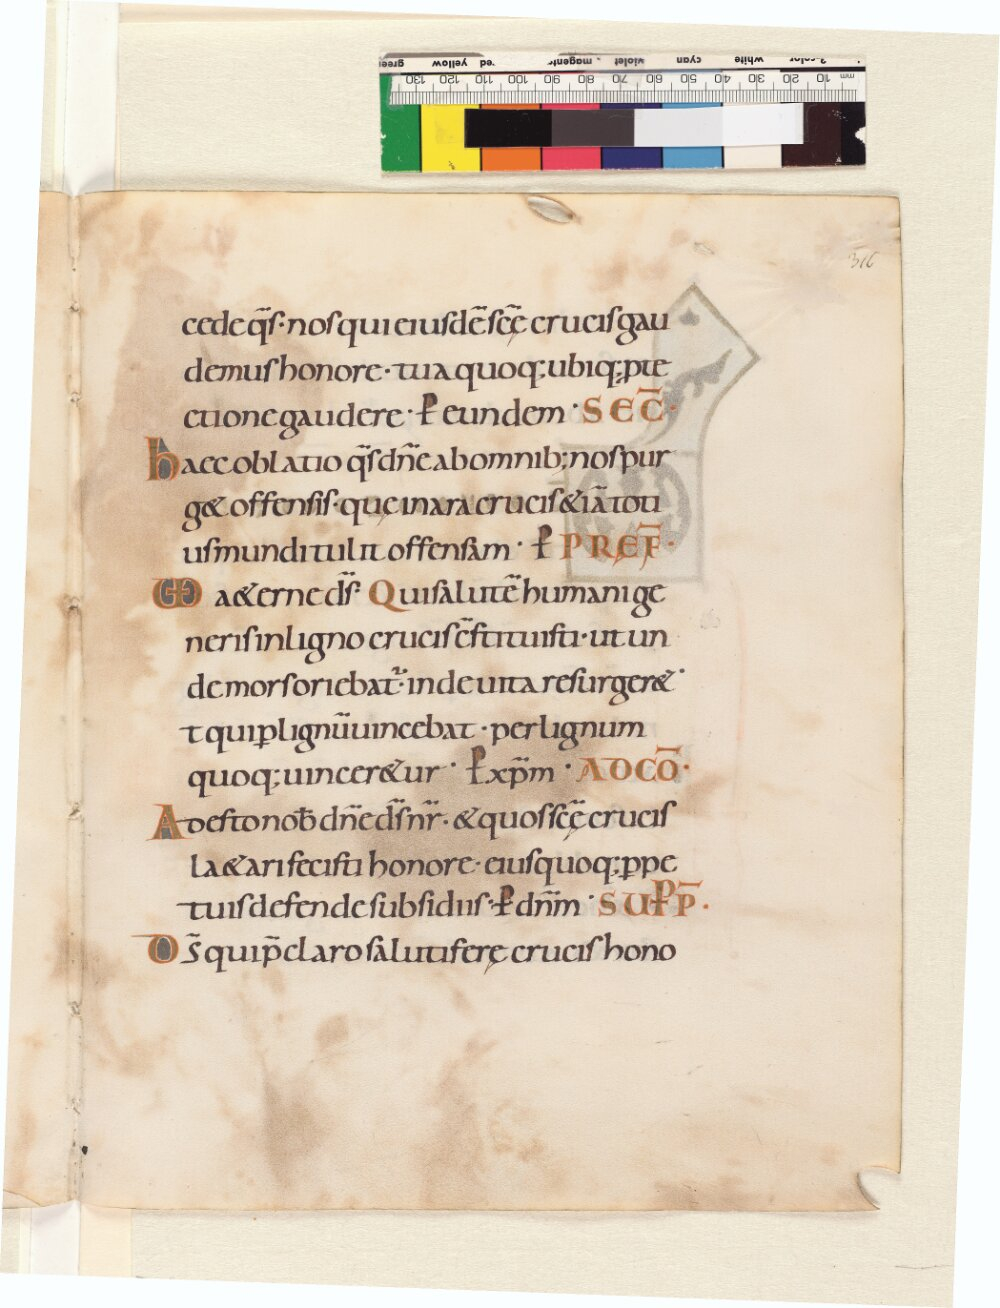 green yellow red magenta violet cyan white 3-color
130 120 110 100 90 80 70 60 50 40 30 20 10 mm
316
cede q̄s· nos qui eiusdē sc̄ę crucis gau
demus honore· tua quoq; ubiq; ꝓte
ctione gaudere· P̲ eundem· SEC̄·
haec oblatio q̄s dn̄e ab omnib; nos pur
g& offensis· quę in ara crucis &iā toti
us mundi tulit offensam· P̲ PREF̄·
UD a&erne ds̄· Qui salutē humani ge
neris in ligno crucis c̄stituisti· ut un
de mors oriebat̄· inde uita resurger&·
& qui ꝑ lignū uincebat· per lignum
quoq; uincer&ur· P̲ xp̄m· AD CŌ·
Adesto nob̄ dn̄e ds̄ nr̄· & quos sc̄ę crucis
la&ari fecisti honore· eius quoq; ꝑpe
tuis defende subsidiis· P̲ dn̄m· SUP̲ P̄·
Ds̄ qui p̄claro salutiferę crucis hono